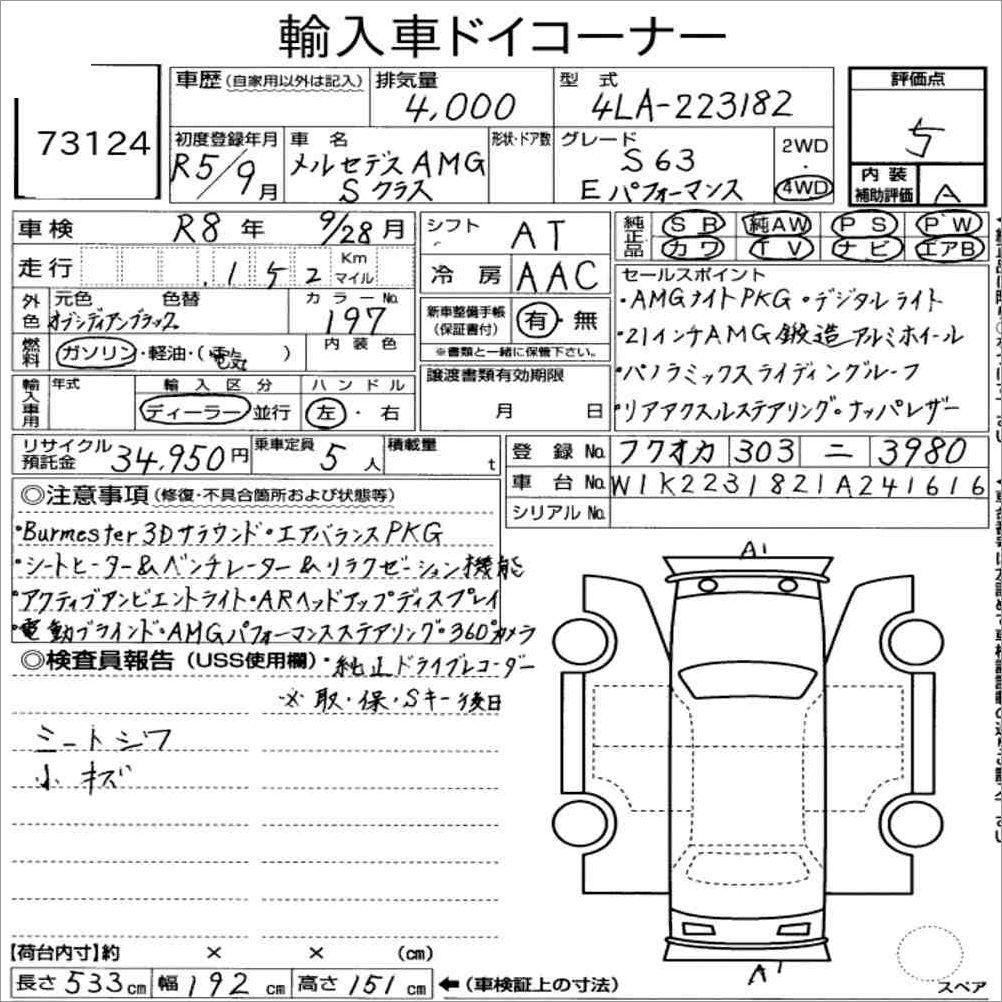 輸入車ドイコーナー
73124
車歴(自家用以外は記入)
排気量
4,000
型式
4LA-223182
評価点
5
初度登録年月
R5/9月
車名
メルセデスAMG
Sクラス
形状・ドア数
グレード
S63
Eパフォーマンス
2WD
・
4WD
内装
補助評価
A
車検 R8年 9/28月
シフト AT
純正品
SB 純AW PS PW
カワ TV ナビ エアB
走行 .152 Km
マイル
冷房 AAC
セールスポイント
・AMGナイトPKG・デジタルライト
・21インチAMG鍛造アルミホイール
・パノラミックスライディングルーフ
・リアアクスルステアリング・ナッパレザー
外色
元色 色替
オブシディアンブラック
カラーNo.
197
新車整備手帳
(保証書付)
有・無
※書類と一緒に保管下さい。
燃料
ガソリン・軽油・(電気)
内装色
譲渡書類有効期限
月 日
輸入車用
年式
輸入区分
ディーラー・並行
ハンドル
左・右
リサイクル
預託金
34,950円
乗車定員
5人
積載量
t
登録No. フクオカ 303 ニ 3980
車台No. W1K2231821A241616
シリアルNo.
◎注意事項(修復・不具合箇所および状態等)
・Burmester3Dサラウンド・エアバランスPKG
・シートヒーター&ベンチレーター&リラクゼーション機能
・アクティブアンビエントライト・ARヘッドアップディスプレイ
・電動ブラインド・AMGパフォーマンスステアリング・360°カメラ
◎検査員報告(USS使用欄)・純正ドライブレコーダー
※取・保・Sキー後日
シートシワ
小キズ
A1
A1
【荷台内寸】約 × × (cm)
長さ533cm 幅192cm 高さ151cm ←(車検証上の寸法)
スペア